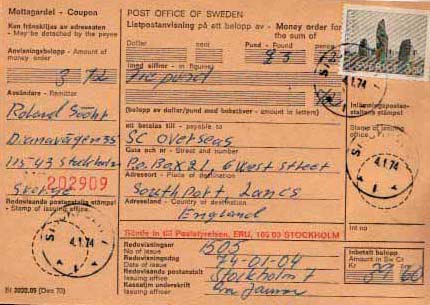 Mottagardel - Coupon
Kan frånskiljas av adressaten
- May be detached by the payee
Anvisningsbelopp - Amount of
money order
Avsändare - Remitter
Roland
Dianavägen 35
115 43 Stockholm
202909
Sverige
Redovisande postanstalts stämpel
- Stamp of issuing office
4.1.74
Bl 2022.09 (Dec 70)
POST OFFICE OF SWEDEN
Listpostanvisning på ett belopp av - Money order for
the sum of
Dollar
cent
Pund - Pound
(med siffror - in figures)
pund
(belopp av dollar/pund med bokstäver - amount in letters)
att betalas till - payable to
SC Overseas
Gata och nr - Street and number
P.O. Box 21, 6 West Street
Adressort - Place of destination
Southport, Lancs
Adressland - Country of destination
England
Sänds in till Poststyrelsen, ERU, 105 03 STOCKHOLM
Redovisningsnr
No of issue
1505
Redovisningsdag
Date of issue
74-01-04
Redovisande postanstalt
Issuing office
Stockholm 7
Kassatjm underskrift
Issuing officer
4.1.74
Inlämningspostan-
staltens stämpel
Stamp of issuing
office
4.1.74
Int no
Inbetalt belopp
Amount in Sw Cr
Kr
39 60